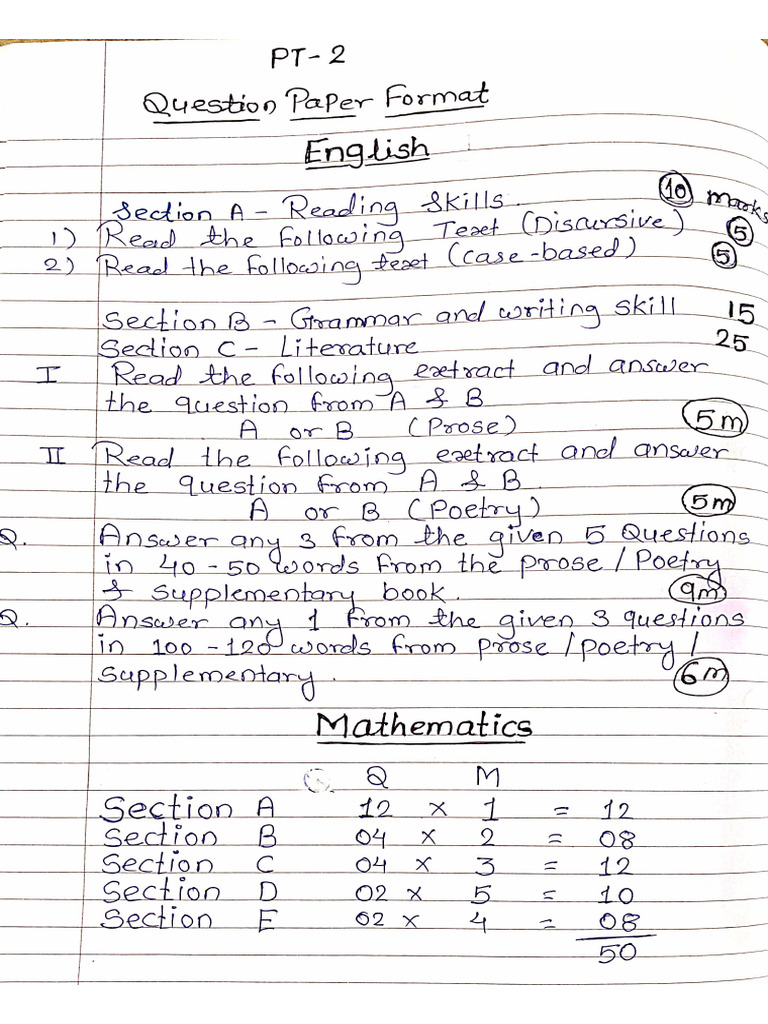 PT-2
Question Paper Format
English
Section A - Reading Skills. 10 marks
1) Read the following Text (Discursive) 5
2) Read the following text (case-based) 5
Section B - Grammar and writing skill 15
Section C - Literature 25
I Read the following extract and answer
the question from A & B
A or B (Prose) 5m
II Read the following extract and answer
the question from A & B.
A or B (Poetry) 5m
Q. Answer any 3 from the given 5 Questions
in 40-50 words from the prose / Poetry
& supplementary book. 9m
Q. Answer any 1 from the given 3 questions
in 100-120 words from prose / poetry /
supplementary. 6m
Mathematics
Q M
Section A 12 × 1 = 12
Section B 04 × 2 = 08
Section C 04 × 3 = 12
Section D 02 × 5 = 10
Section E 02 × 4 = 08
50